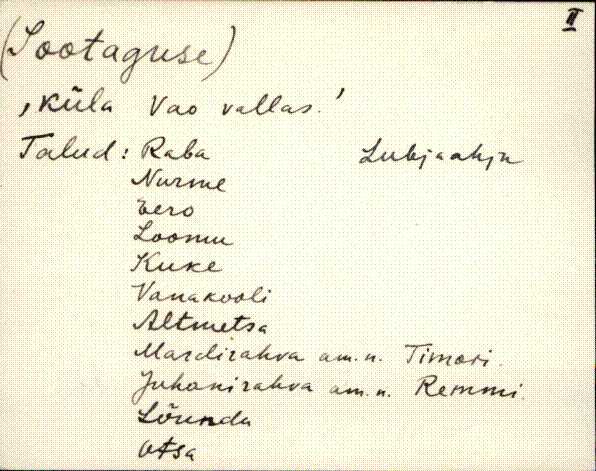 II
(Sootaguse)
, küla Vao vallas.'
Talud: Raba Lubjaahju
Nurme
Eero
Loomu
Kuke
Vanakooli
Altmetsa
Mardirahva am. n. Timori.
Juhanirahva am. n. Remmi.
Lõunda
Otsa